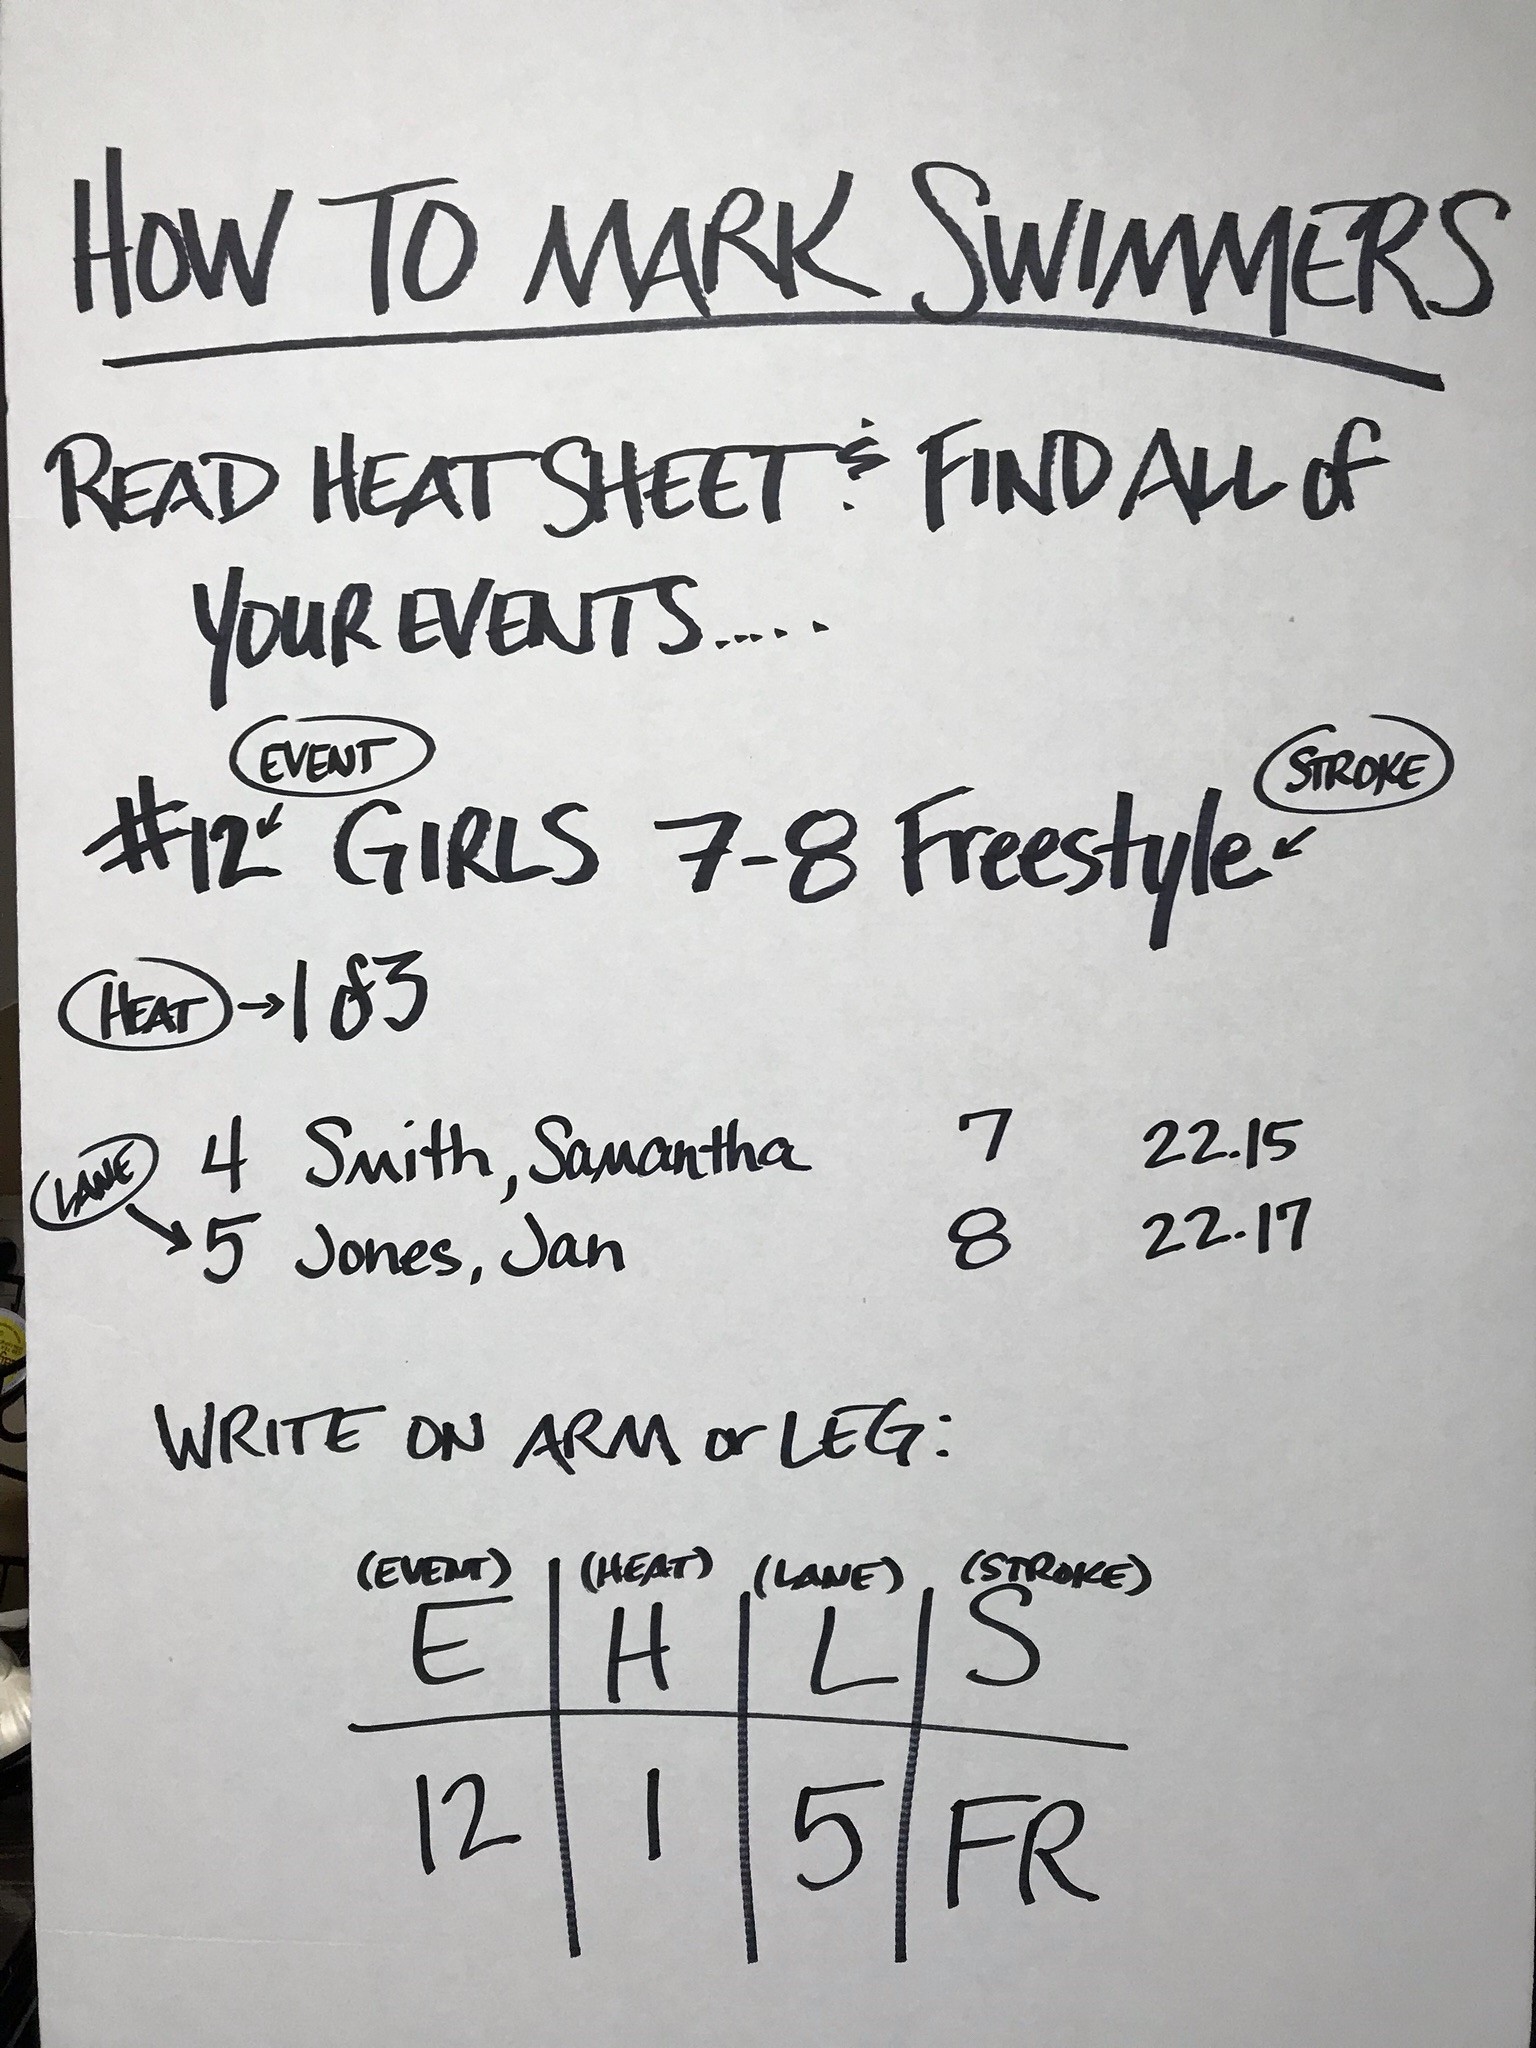 HOW TO MARK SWIMMERS
READ HEAT SHEET & FIND ALL of
YOUR EVENTS.....
EVENT
STROKE
#12 GIRLS 7-8 Freestyle
HEAT → 1 of 3
LANE
4 Smith, Samantha 7 22.15
5 Jones, Jan 8 22.17
WRITE ON ARM or LEG:
(EVENT) (HEAT) (LANE) (STROKE)
E H L S
12 1 5 FR